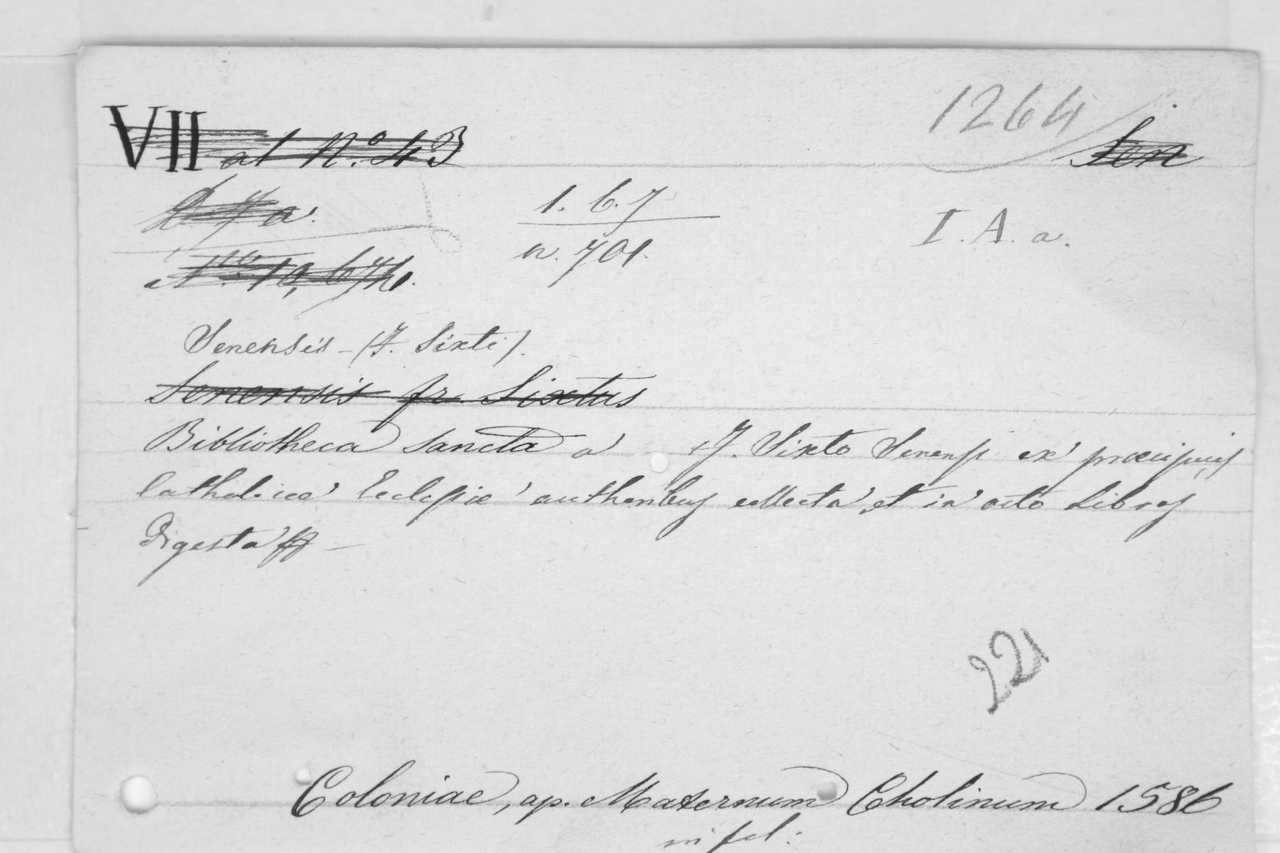 VII al N.o 43
1264
Sen
1. 6. 7
n. 701.
I. A. a.
Senensis - (F. Sixti).
Senensis fr. Sixtus
Bibliotheca Sancta a' F. Sixto Senensi ex' præcipuis
Catholicæ' Ecclesiæ' authoribus collecta, et in' octo Libros
Digesta
221
Coloniae, ap. Maternum Cholinum 1586
in fol: